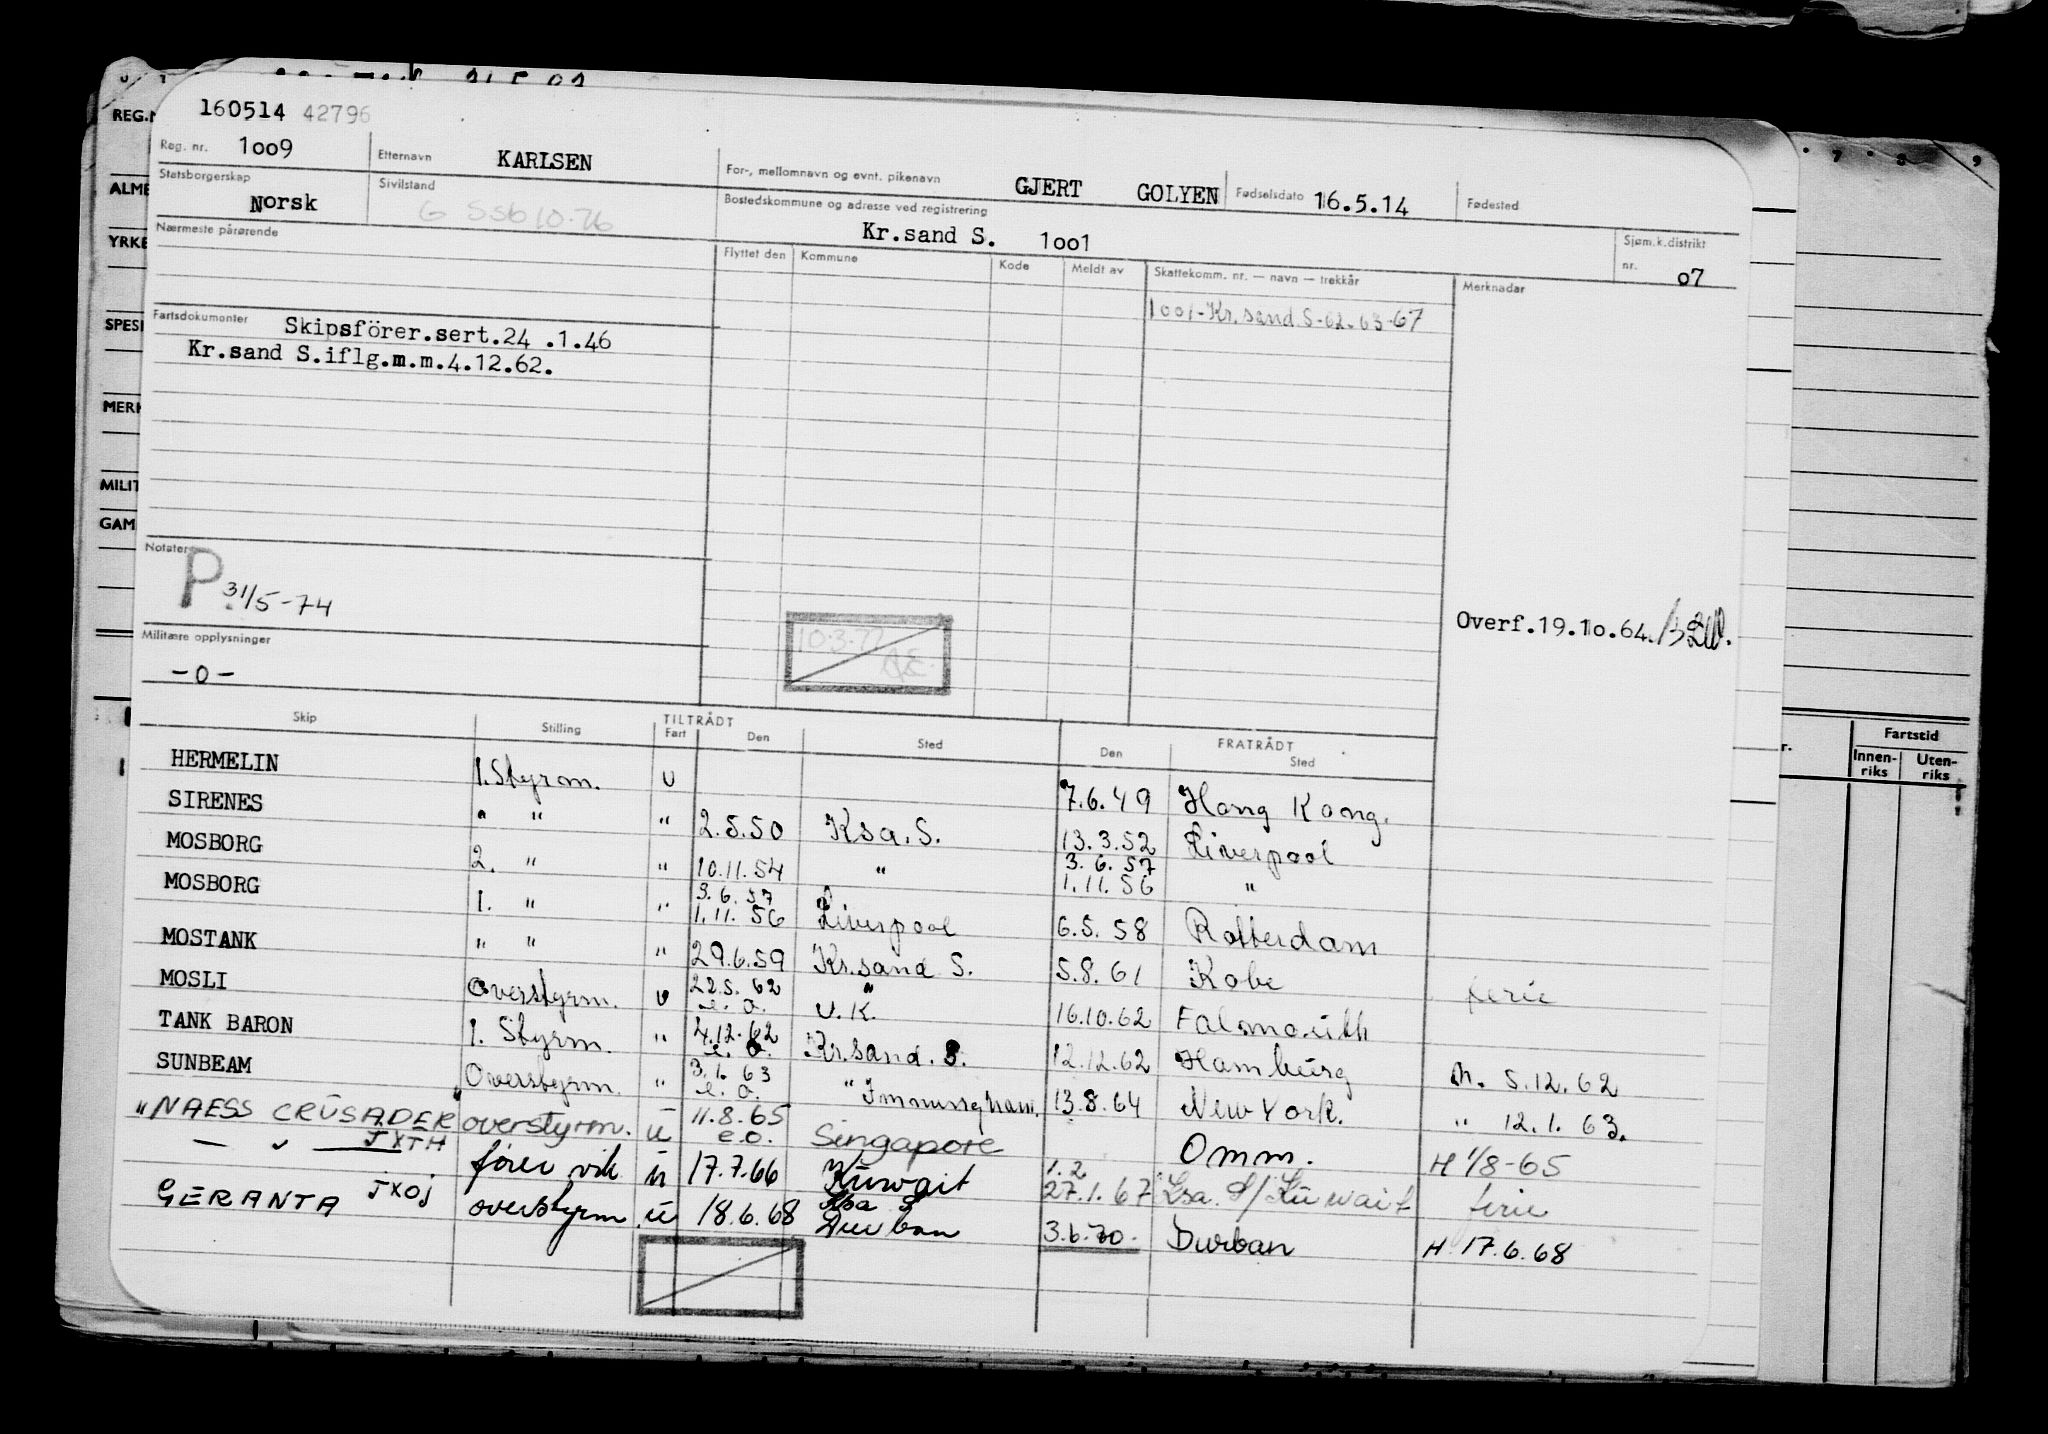 160514 42796
REG.N
Reg. nr. 1oo9 Etternavn KARLSEN For-, mellomnavn og evnt. pikenavn GJERT GOLYEN Fødselsdato 16.5.14 Fødested
ALME
Statsborgerskap Norsk Sivilstand G SSb 10.76 Bostedskommune og adresse ved registrering Kr.sand S. 1oo1 Sjøm.k.distrikt nr. o7
YRKE
Nærmeste pårørende Flyttet den Kommune Kode Meldt av Skattekomm. nr. — navn — trekkår Merknader
1001-Kr.sand.S-62.63-67
SPESI
Fartsdokumenter Skipsförer.sert.24 .1.46
Kr.sand S.iflg.m.m.4.12.62.
MERK
MILIT
GAM
Notater P. 31/5-74
Overf.19.1o.64.
10.3.77
Militære opplysninger
-o-
Skip Stilling TILTRÅDT Fart Den Sted FRATRÅDT Den Sted
r. Fartstid
Innen-riks Uten-riks
HERMELIN 1. Styrm. U 7.6.49 Hong Kong.
SIRENES " " " 2.5.50 Ksa.S. 13.3.52 Liverpool
MOSBORG 2. " " 10.11.54 " 3.6.57 1.11.56 "
MOSBORG 1. " " 3.6.57 1.11.56 Liverpool 6.5.58 Rotterdam
MOSTANK " " " 29.6.59 Kr.sand S. 5.8.61 Kobe ferie
MOSLI Overstyrm. U 22.5.62 e.o. " U.K. 16.10.62 Falmouth
TANK BARON 1. Styrm. " 4.12.62 e.o. Kr.sand.S. 12.12.62 Hamburg M. 5.12.62
SUNBEAM Overstyrm. " 3.1.63 e.o. " Immingham. 13.8.64 New York. " 12.1.63.
" NAESS CRUSADER " overstyrm. u 11.8.65 e.o. Singapore Omm. H 1/8-65
— " — JXTH fører vik u 17.7.66 Kuwait 1.2 27.1.67 Ksa. S/Kuwait ferie
GERANTA JXOJ overstyrm. u 18.6.68 Ksa S Durban 3.6.70. Durban H. 17.6.68